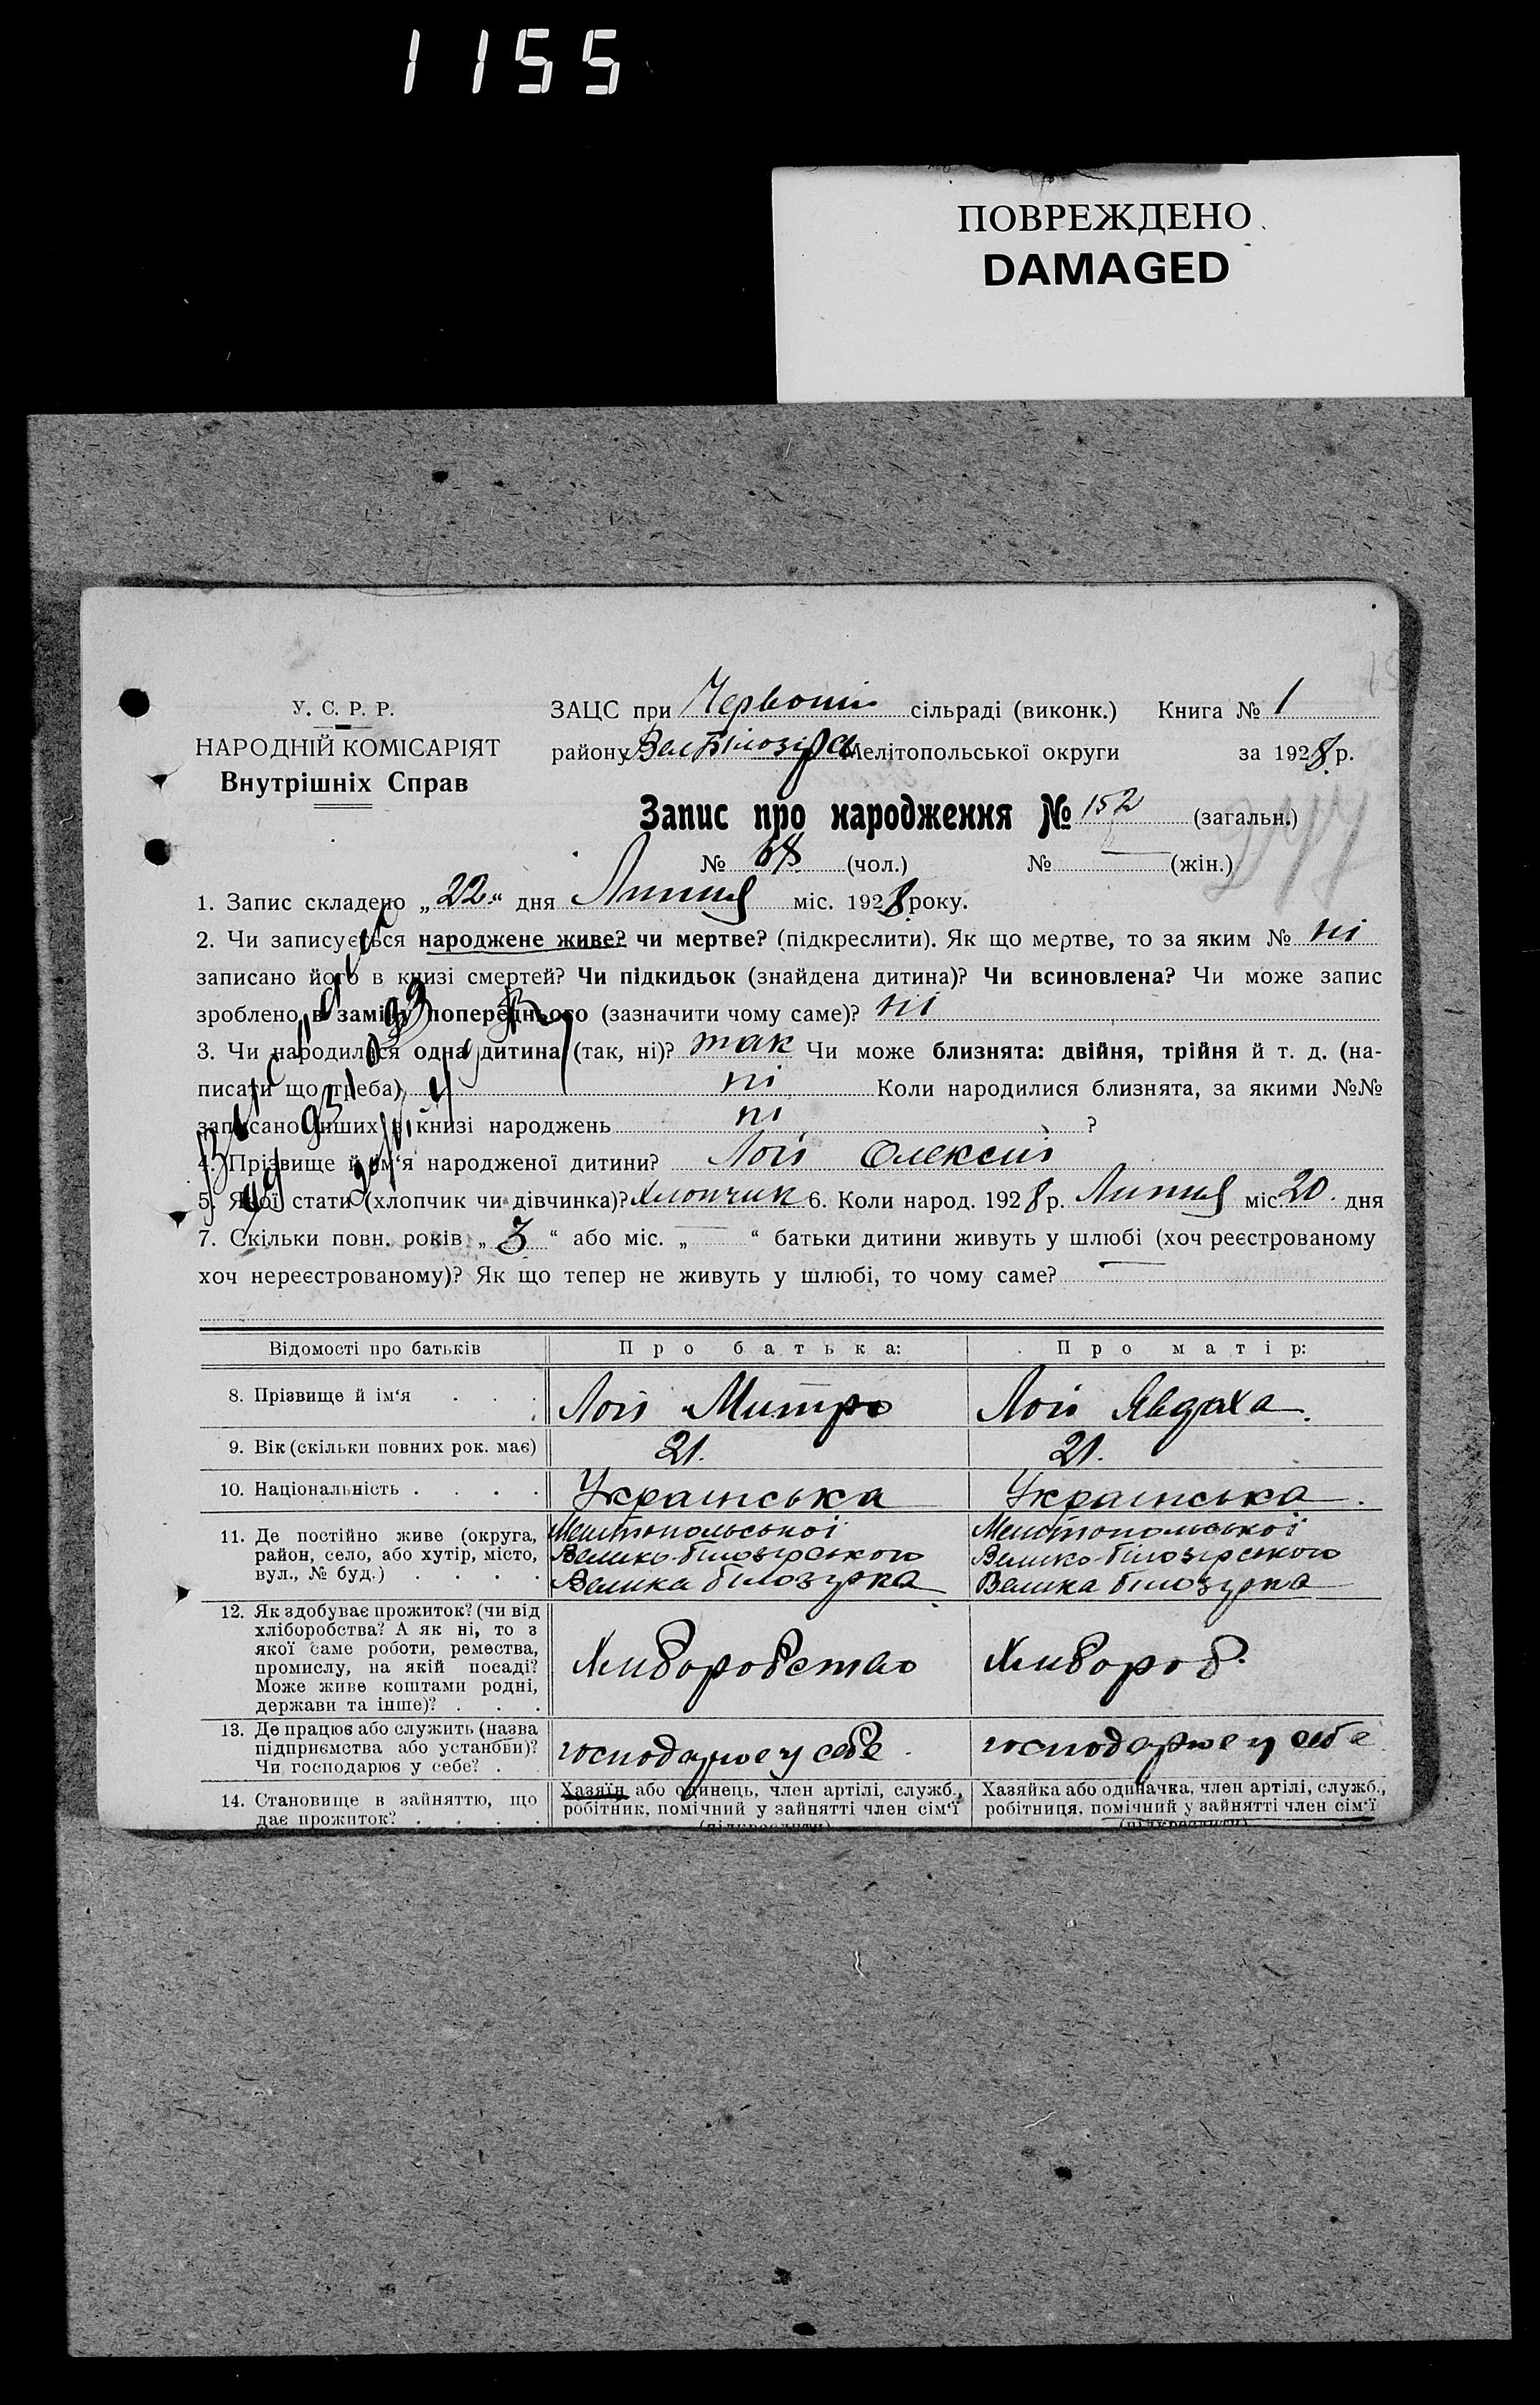 1155
ПОВРЕЖДЕНО
DAMAGED
У. С. Р. Р.
НАРОДНІЙ КОМІСАРІЯТ
Внутрішніх Справ
ЗАЦС при Червоній сільраді (виконк.) Книга № 1
району Вел Білозірс Мелітопольської округи за 1928 р.
Запис про народження № 152 (загальн.)
№ 68 (чол.) № — (жін.)
277
1. Запис складено „22“ дня Липня міс. 1928 року.
2. Чи записується народжене живе? чи мертве? (підкреслити). Як що мертве, то за яким № ні
записано його в книзі смертей? Чи підкидьок (знайдена дитина)? Чи всиновлена? Чи може запис
зроблено в заміну попереднього (зазначити чому саме)? ні
3. Чи народилася одна дитина (так, ні)? так Чи може близнята: двійня, трійня й т. д. (на-
писати що треба) ні Коли народилися близнята, за якими №№
записано інших в книзі народжень ні ?
4. Прізвище й ім‘я народженої дитини? Лой Олексій
5. Якої стати (хлопчик чи дівчинка)? Хлопчик 6. Коли народ. 1928 р. Липня міс. 20. дня
7. Скільки повн. років „3“ або міс. „—“ батьки дитини живуть у шлюбі (хоч реєстрованому
хоч нереєстрованому)? Як що тепер не живуть у шлюбі, то чому саме? —
Відомості про батьків Про батька: Про матір:
8. Прізвище й ім‘я . . . Лой Митро Лой Явдаха.
9. Вік (скільки повних рок. має) 21. 21.
10. Національність . . . . Українська Українська.
11. Де постійно живе (округа, Мелітопольської Мелітопольської
район, село, або хутір, місто, Велико-Білозірського Велико-Білозірського
вул., № буд.) . . . . Велика Білозірка Велика Білозірка
12. Як здобуває прожиток? (чи від
хліборобства? А як ні, то з
якої саме роботи, ремества,
промислу, на якій посаді? Хліборобство Хлібороб.
Може живе коштами родні,
держави та інше)? . . .
13. Де працює або служить (назва
підприємства або установи)? господарює у себе господарює у себе
Чи господарює у себе? .
14. Становище в зайняттю, що Хазяїн або одинець, член артілі, служб., Хазяйка або одиначка, член артілі, служб.,
дає прожиток? . . . . робітник, помічний у зайнятті член сім‘ї робітниця, помічний у зайнятті член сім‘ї
(підкреслити) (підкреслити)